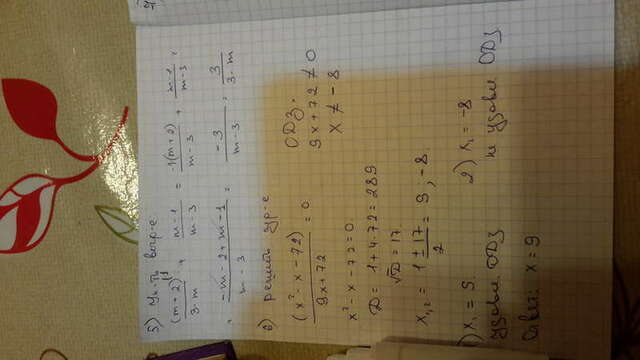 5) Упр-ть выр-е
(m+2)/(3-m) + (m-1)/(m-3) = -1(m+2)/(m-3) + (m-1)/(m-3) =
= (-m-2+m-1)/(m-3) = -3/(m-3) = 3/(3-m)
6) Решить ур-е
(x²-x-72)/(9x+72) = 0
ОДЗ:
9x+72≠0
x≠-8
x²-x-72=0
D=1+4·72=289
√D=17
x₁,₂ = (1±17)/2 = 9; -8.
1) x₁=9
удовл ОДЗ
2) x₁=-8
не удовл ОДЗ
Ответ: x=9